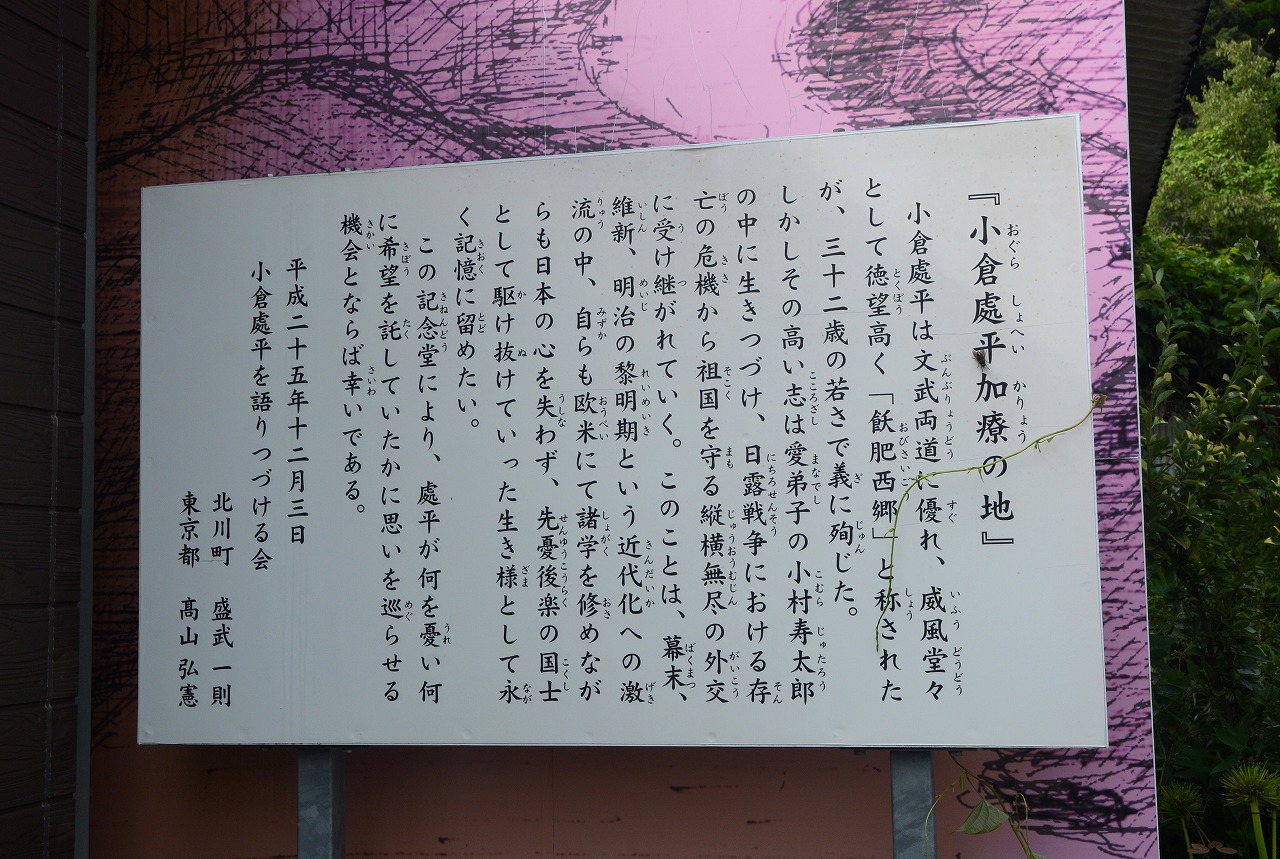 『小倉處平加療の地』
小倉處平は文武両道に優れ、威風堂々
として徳望高く「飫肥西郷」と称された
が、三十二歳の若さで義に殉じた。
しかしその高い志は愛弟子の小村寿太郎
の中に生きつづけ、日露戦争における存
亡の危機から祖国を守る縦横無尽の外交
に受け継がれていく。このことは、幕末、
維新、明治の黎明期という近代化への激
流の中、自らも欧米にて諸学を修めなが
らも日本の心を失わず、先憂後楽の国士
として駆け抜けていった生き様として永
く記憶に留めたい。
この記念堂により、處平が何を憂い何
に希望を託していたかに思いを巡らせる
機会とならば幸いである。
平成二十五年十二月三日
小倉處平を語りつづける会
北川町 盛武一則
東京都 髙山弘憲